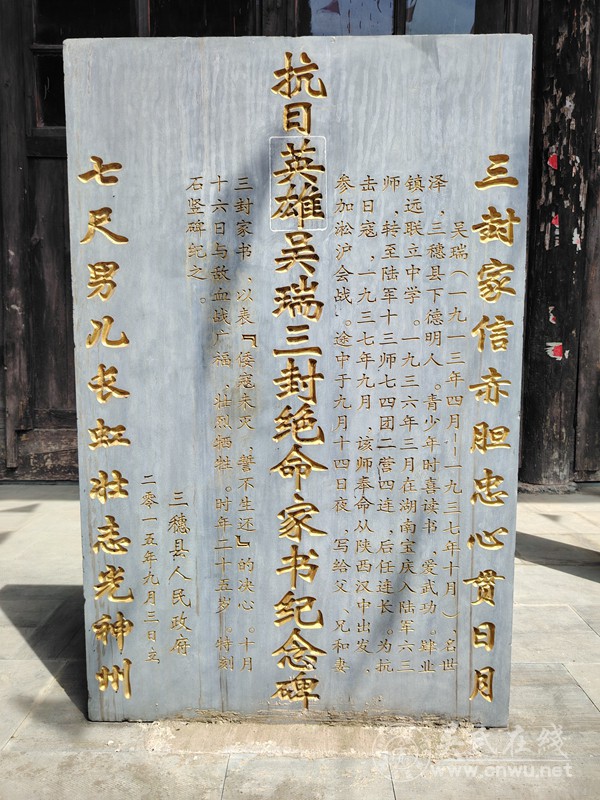 三封家信赤胆忠心贯日月
吴瑞(一九一三年四月--一九三七年十月)，名世
泽，三穗县下德明人。青少年时喜读书，爱武功。肄业
镇远联立中学。一九三六年三月在湖南宝庆入陆军六三
师，转至陆军十三师七四团二营四连，后任连长。为抗
击日寇，一九三七年九月，该师奉命从陕西汉中出发，
参加淞沪会战。途中于九月十四日夜，写给父、兄和妻
抗日英雄吴瑞三封绝命家书纪念碑
三封家书，以表『倭寇未灭，誓不生还』的决心。十月
十六日与敌血战广福，壮烈牺牲。时年二十五岁。特刻
石竖碑纪之。
三穗县人民政府
二零一五年九月三日立
七尺男儿长虹壮志光神州
吴氏在线
www.cnwu.net